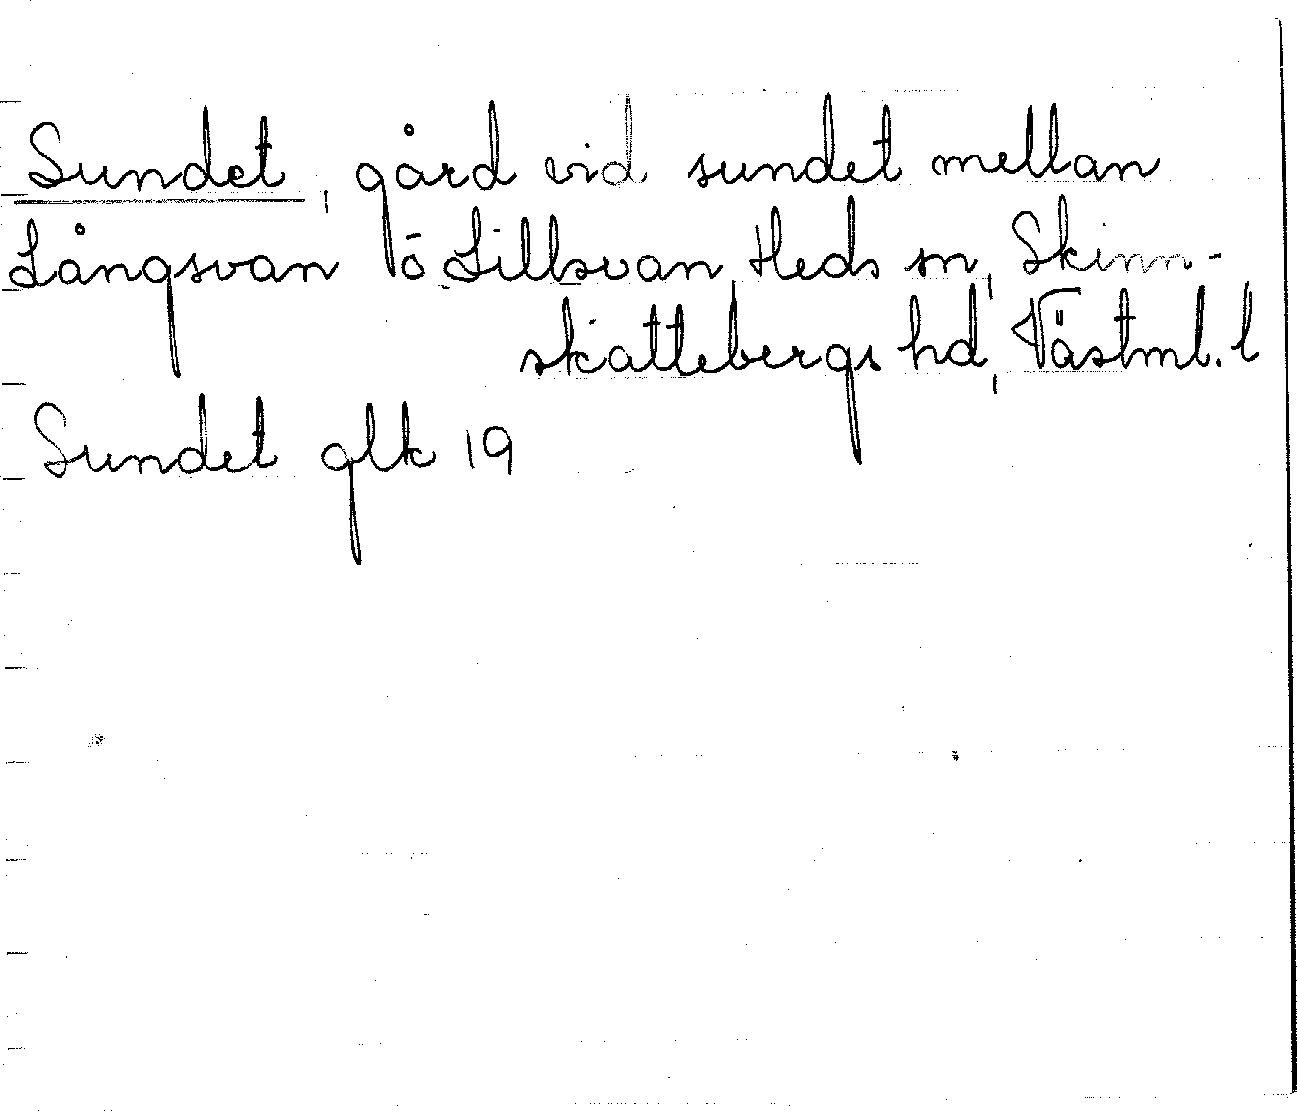 Sundet, gård vid sundet mellan
Långsvan ō Lillsvan, Heds sn, Skinn-
skattebergs hd, Västml. l
Sundet glk 19